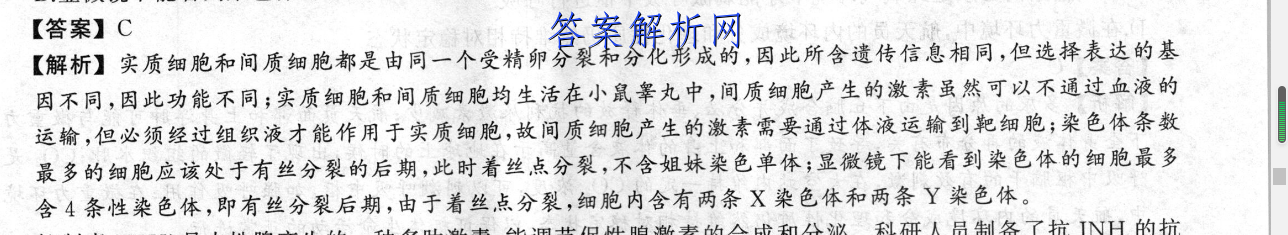 【答案】C
答案解析网
【解析】实质细胞和间质细胞都是由同一个受精卵分裂和分化形成的,因此所含遗传信息相同,但选择表达的基
因不同,因此功能不同;实质细胞和间质细胞均生活在小鼠睾丸中,间质细胞产生的激素虽然可以不通过血液的
运输,但必须经过组织液才能作用于实质细胞,故间质细胞产生的激素需要通过体液运输到靶细胞;染色体条数
最多的细胞应该处于有丝分裂的后期,此时着丝点分裂,不含姐妹染色单体;显微镜下能看到染色体的细胞最多
含4条性染色体,即有丝分裂后期,由于着丝点分裂,细胞内含有两条X染色体和两条Y染色体。
是由性腺产生的一种多肽激素,能调节促性腺激素的合成和分泌。科研人员制备了抗INH的抗